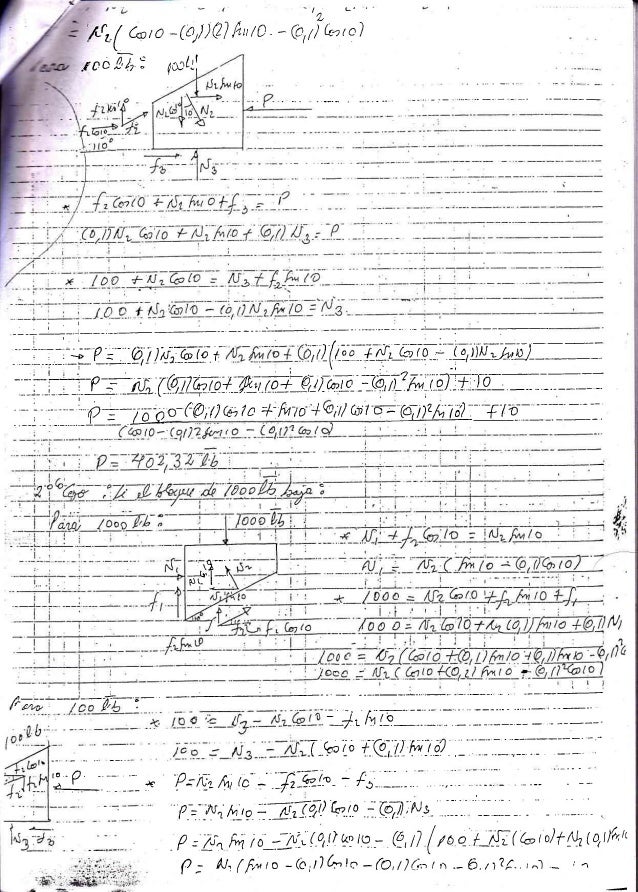 = N₂( Cos10 - (0,1)(2) Sen10 - (0,1)² Cos10)
Para 100 lb :
100 lb
N₂ Sen10
P
N₂ Cos10
10
N₂
f₂ Cos10
f₂
10°
f₃
N₃
* f₂ Cos10 + N₂ Sen10 + f₃ = P
(0,1) N₂ Cos10 + N₂ Sen10 + (0,1) N₃ = P
* 100 + N₂ Cos10 = N₃ + f₂ Sen10
100 + N₂ Cos10 - (0,1) N₂ Sen10 = N₃
→ P = (0,1) N₂ Cos10 + N₂ Sen10 + (0,1) (100 + N₂ Cos10 - (0,1) N₂ Sen10)
P = N₂ ((0,1) Cos10 + Sen10 + (0,1) Cos10 - (0,1)² Sen10) + 10
P = 1000 ((0,1) Cos10 + Sen10 + (0,1) Cos10 - (0,1)² Sen10) + 10
(Cos10 - (0,1) 2 Sen10 - (0,1)² Cos10)
P = 402,32 lb
2° Caso : Si el bloque de 1000 lb baja :
Para 1000 lb :
1000 lb
N₁
N₂
f₁
f₂ Cos10
f₂ Sen10
* N₁ + f₂ Cos10 = N₂ Sen10
N₁ = N₂ ( Sen10 - (0,1) Cos10)
* 1000 = N₂ Cos10 + f₂ Sen10 + f₁
1000 = N₂ Cos10 + N₂ (0,1) Sen10 + (0,1) N₁
1000 = N₂ (Cos10 + (0,1) Sen10 + (0,1) Sen10 - (0,1)²
1000 = N₂ (Cos10 + (0,2) Sen10 - (0,1)² Cos10)
Para 100 lb :
100 lb
f₂ Cos10
f₂
f₂ Sen10
P
N₃
f₃
* 100 = N₃ - N₂ Cos10 - f₂ Sen10
100 = N₃ - N₂ ( Cos10 + (0,1) Sen10)
* P = N₂ Sen10 - f₂ Cos10 - f₃
P = N₂ Sen10 - N₂ (0,1) Cos10 - (0,1) N₃
P = N₂ Sen10 - N₂ (0,1) Cos10 - (0,1) (100 + N₂ (Cos10) + N₂ (0,1) Sen10
P = N₂ (Sen10 - (0,1) Cos10 - (0,1) Cos10 - 0,1² Sen10) - 10